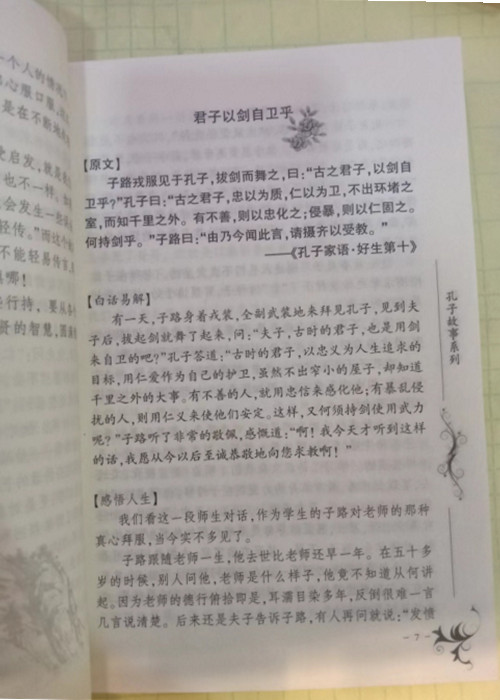 一个人的情
心服口服，
是在不断地
受启发，就是
也不一样。如
会发生一些
轻传。”而这个
不能轻易传言
具哪！
去行持，要从各
贤的智慧，圆
君子以剑自卫乎
【原文】
子路戎服见于孔子，拔剑而舞之，曰：“古之君子，以剑自
卫乎？”孔子曰：“古之君子，忠以为质，仁以为卫，不出环堵之
室，而知千里之外。有不善，则以忠化之；侵暴，则以仁固之。
何持剑乎。”子路曰：“由乃今闻此言，请摄齐以受教。”
——《孔子家语·好生第十》
【白话易解】
有一天，子路身着戎装，全副武装地来拜见孔子，见到夫
子后，拔起剑就舞了起来，问：“夫子，古时的君子，也是用剑
来自卫的吧？”孔子答道：“古时的君子，以忠义为人生追求的
目标，用仁爱作为自己的护卫，虽然不出窄小的屋子，却知道
千里之外的大事。有不善的人，就用忠信来感化他；有暴乱侵
扰的人，则用仁义来使他们安定。这样，又何须持剑使用武力
呢？”子路听了非常的敬佩，感慨道：“啊！我今天才听到这样
的话，我愿从今以后至诚恭敬地向您求教啊！”
【感悟人生】
我们看这一段师生对话，作为学生的子路对老师的那种
真心拜服，当今实不多见了。
子路跟随老师一生，他去世比老师还早一年。在五十多
岁的时候，别人问他，老师是什么样子，他竟不知道从何讲
起。因为老师的德行俯拾即是，耳濡目染多年，反倒很难一言
几言说清楚。后来还是夫子告诉子路，有人再问就说：“发愤
孔子故事系列
-7-